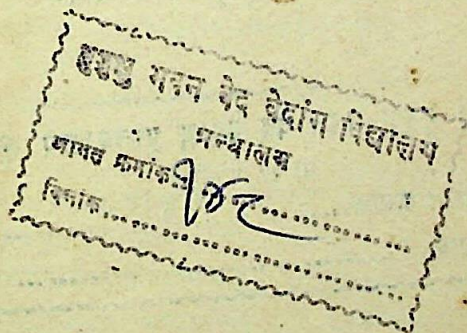 मुमुक्षु भवन वेद वेदांग विद्यालय
ग्रन्थालय
आगत क्रमांक..
दिनांक........................